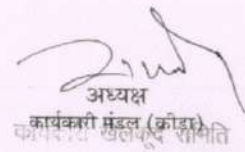 अध्यक्ष
कार्यकारी मंडल (क्रीडा)
खेलकूद समिति